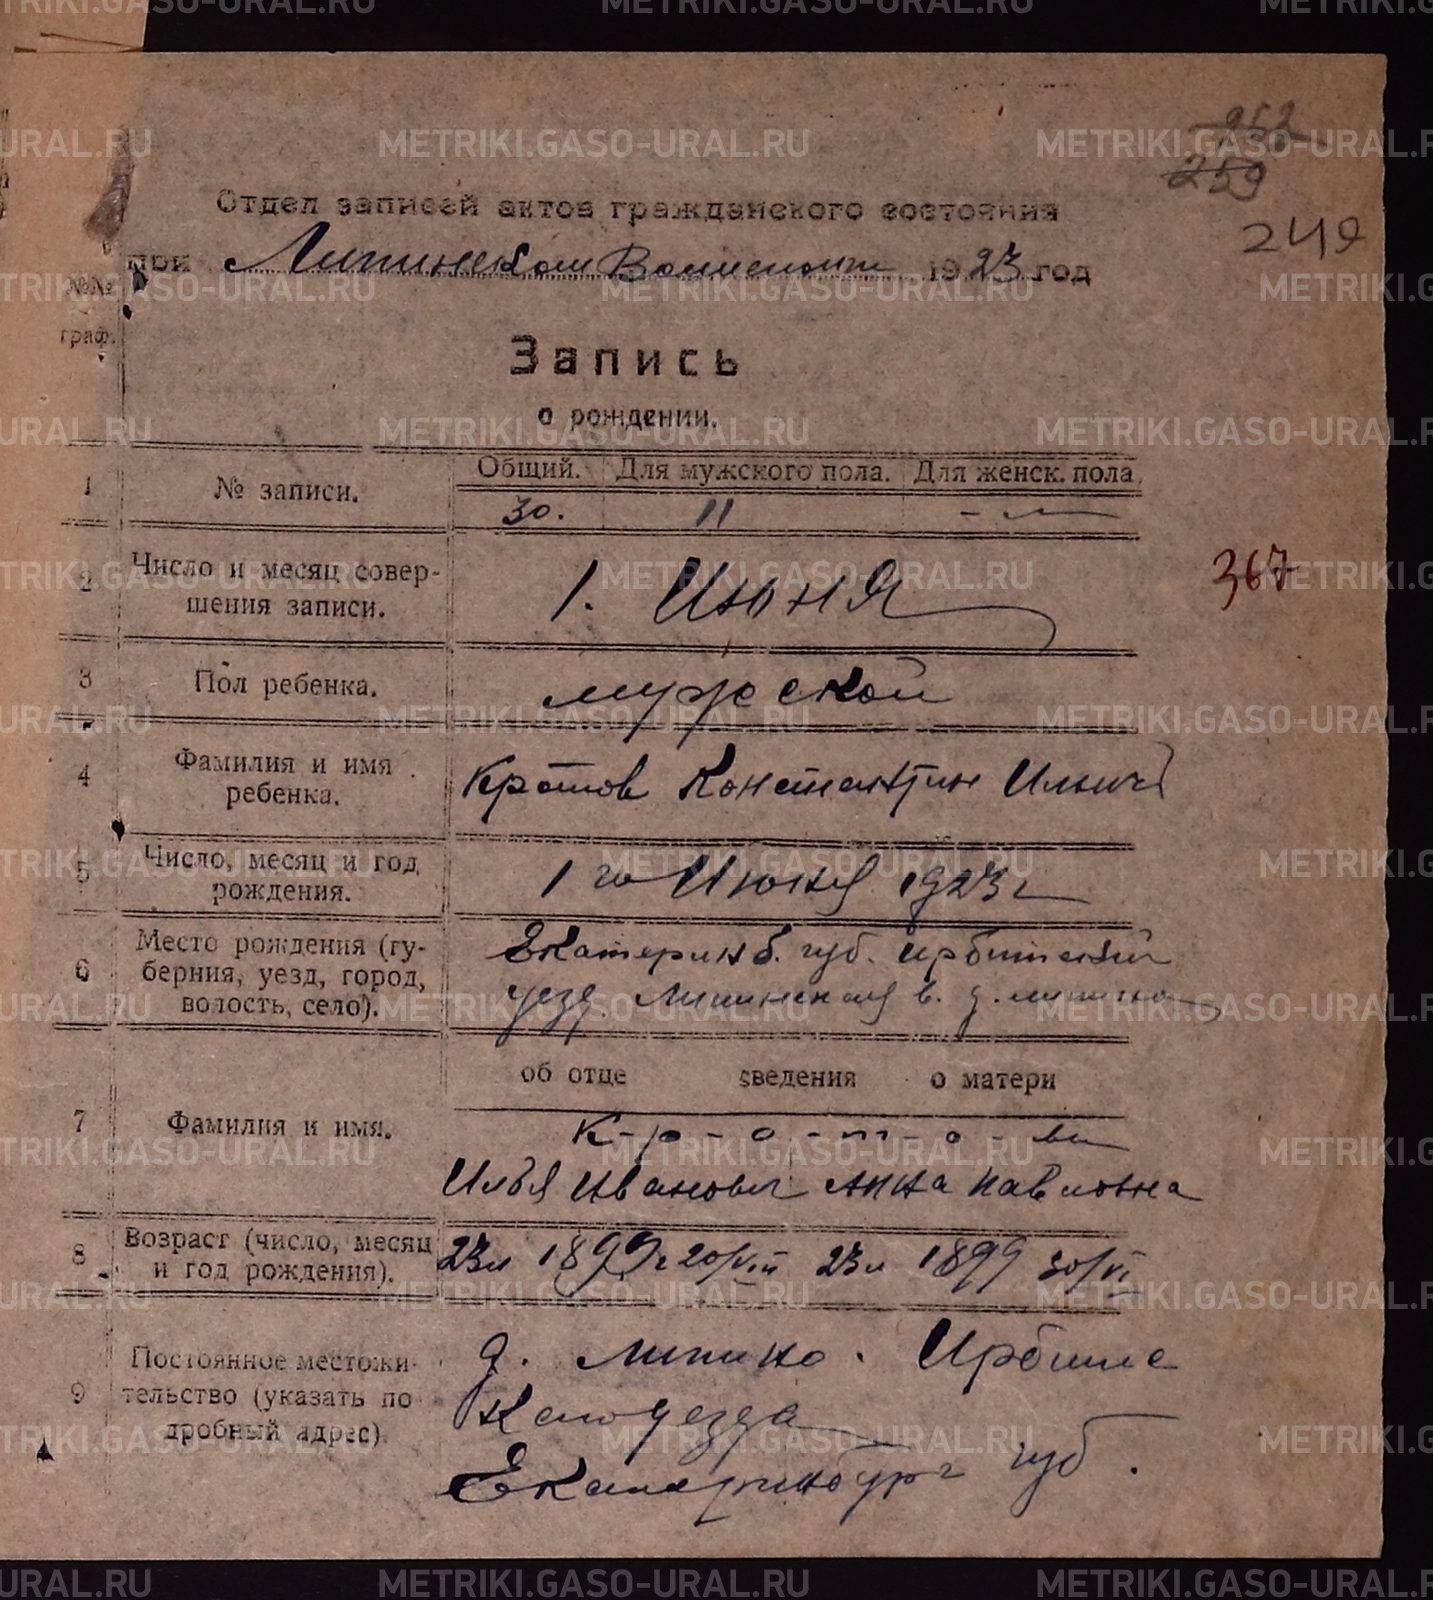 METRIKI.GASO-URAL.RU
252
259
249
Отдел записей актов гражданского состояния
при Липинском Волисполк 1923 год
№№ граф.
Запись
о рождении.
1 № записи. Общий. Для мужского пола. Для женск. пола
30. 11 - —
367
2 Число и месяц совер-
шения записи. 1. Июня
3 Пол ребенка. мужской
4 Фамилия и имя
ребенка. Кротов Константин Ильич
5 Число, месяц и год
рождения. 1 го Июня 1923 г
6 Место рождения (гу-
берния, уезд, город,
волость, село). Екатеринб. губ. Ирбитский
уезд. Липинская в. д. Липина
об отце сведения о матери
7 Фамилия и имя. К-р-о-т-о-вы
Илья Иванович Анна Павловна
8 Возраст (число, месяц
и год рождения). 23 л 1899 г 20/VII 23 л 1899 30/VI
9 Постоянное местожи-
тельство (указать по
дробный адрес). д. Липино. Ирбитс
кого уезда
Екатеринбург губ.